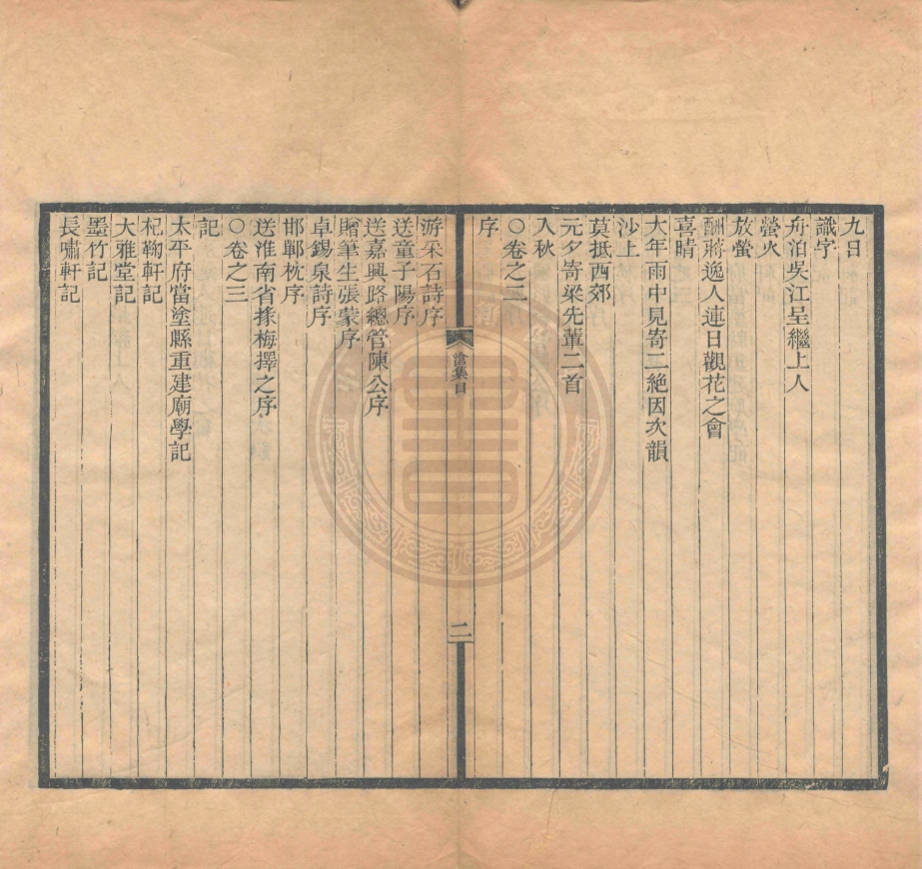 九日
識字
舟泊吳江呈繼上人
螢火
放螢
酬蔣逸人連日觀花之會
喜晴
大年雨中見寄二絶因次韻
沙上
莫抵西郊
元夕寄梁先輩二首
入秋
○卷之二
序
滄集目
二
游采石詩序
送童子陽序
送嘉興路總管陳公序
贈筆生張蒙序
卓錫泉詩序
邯鄲枕序
送淮南省掾梅擇之序
○卷之三
記
太平府當塗縣重建廟學記
杞鞠軒記
大雅堂記
墨竹記
長嘯軒記